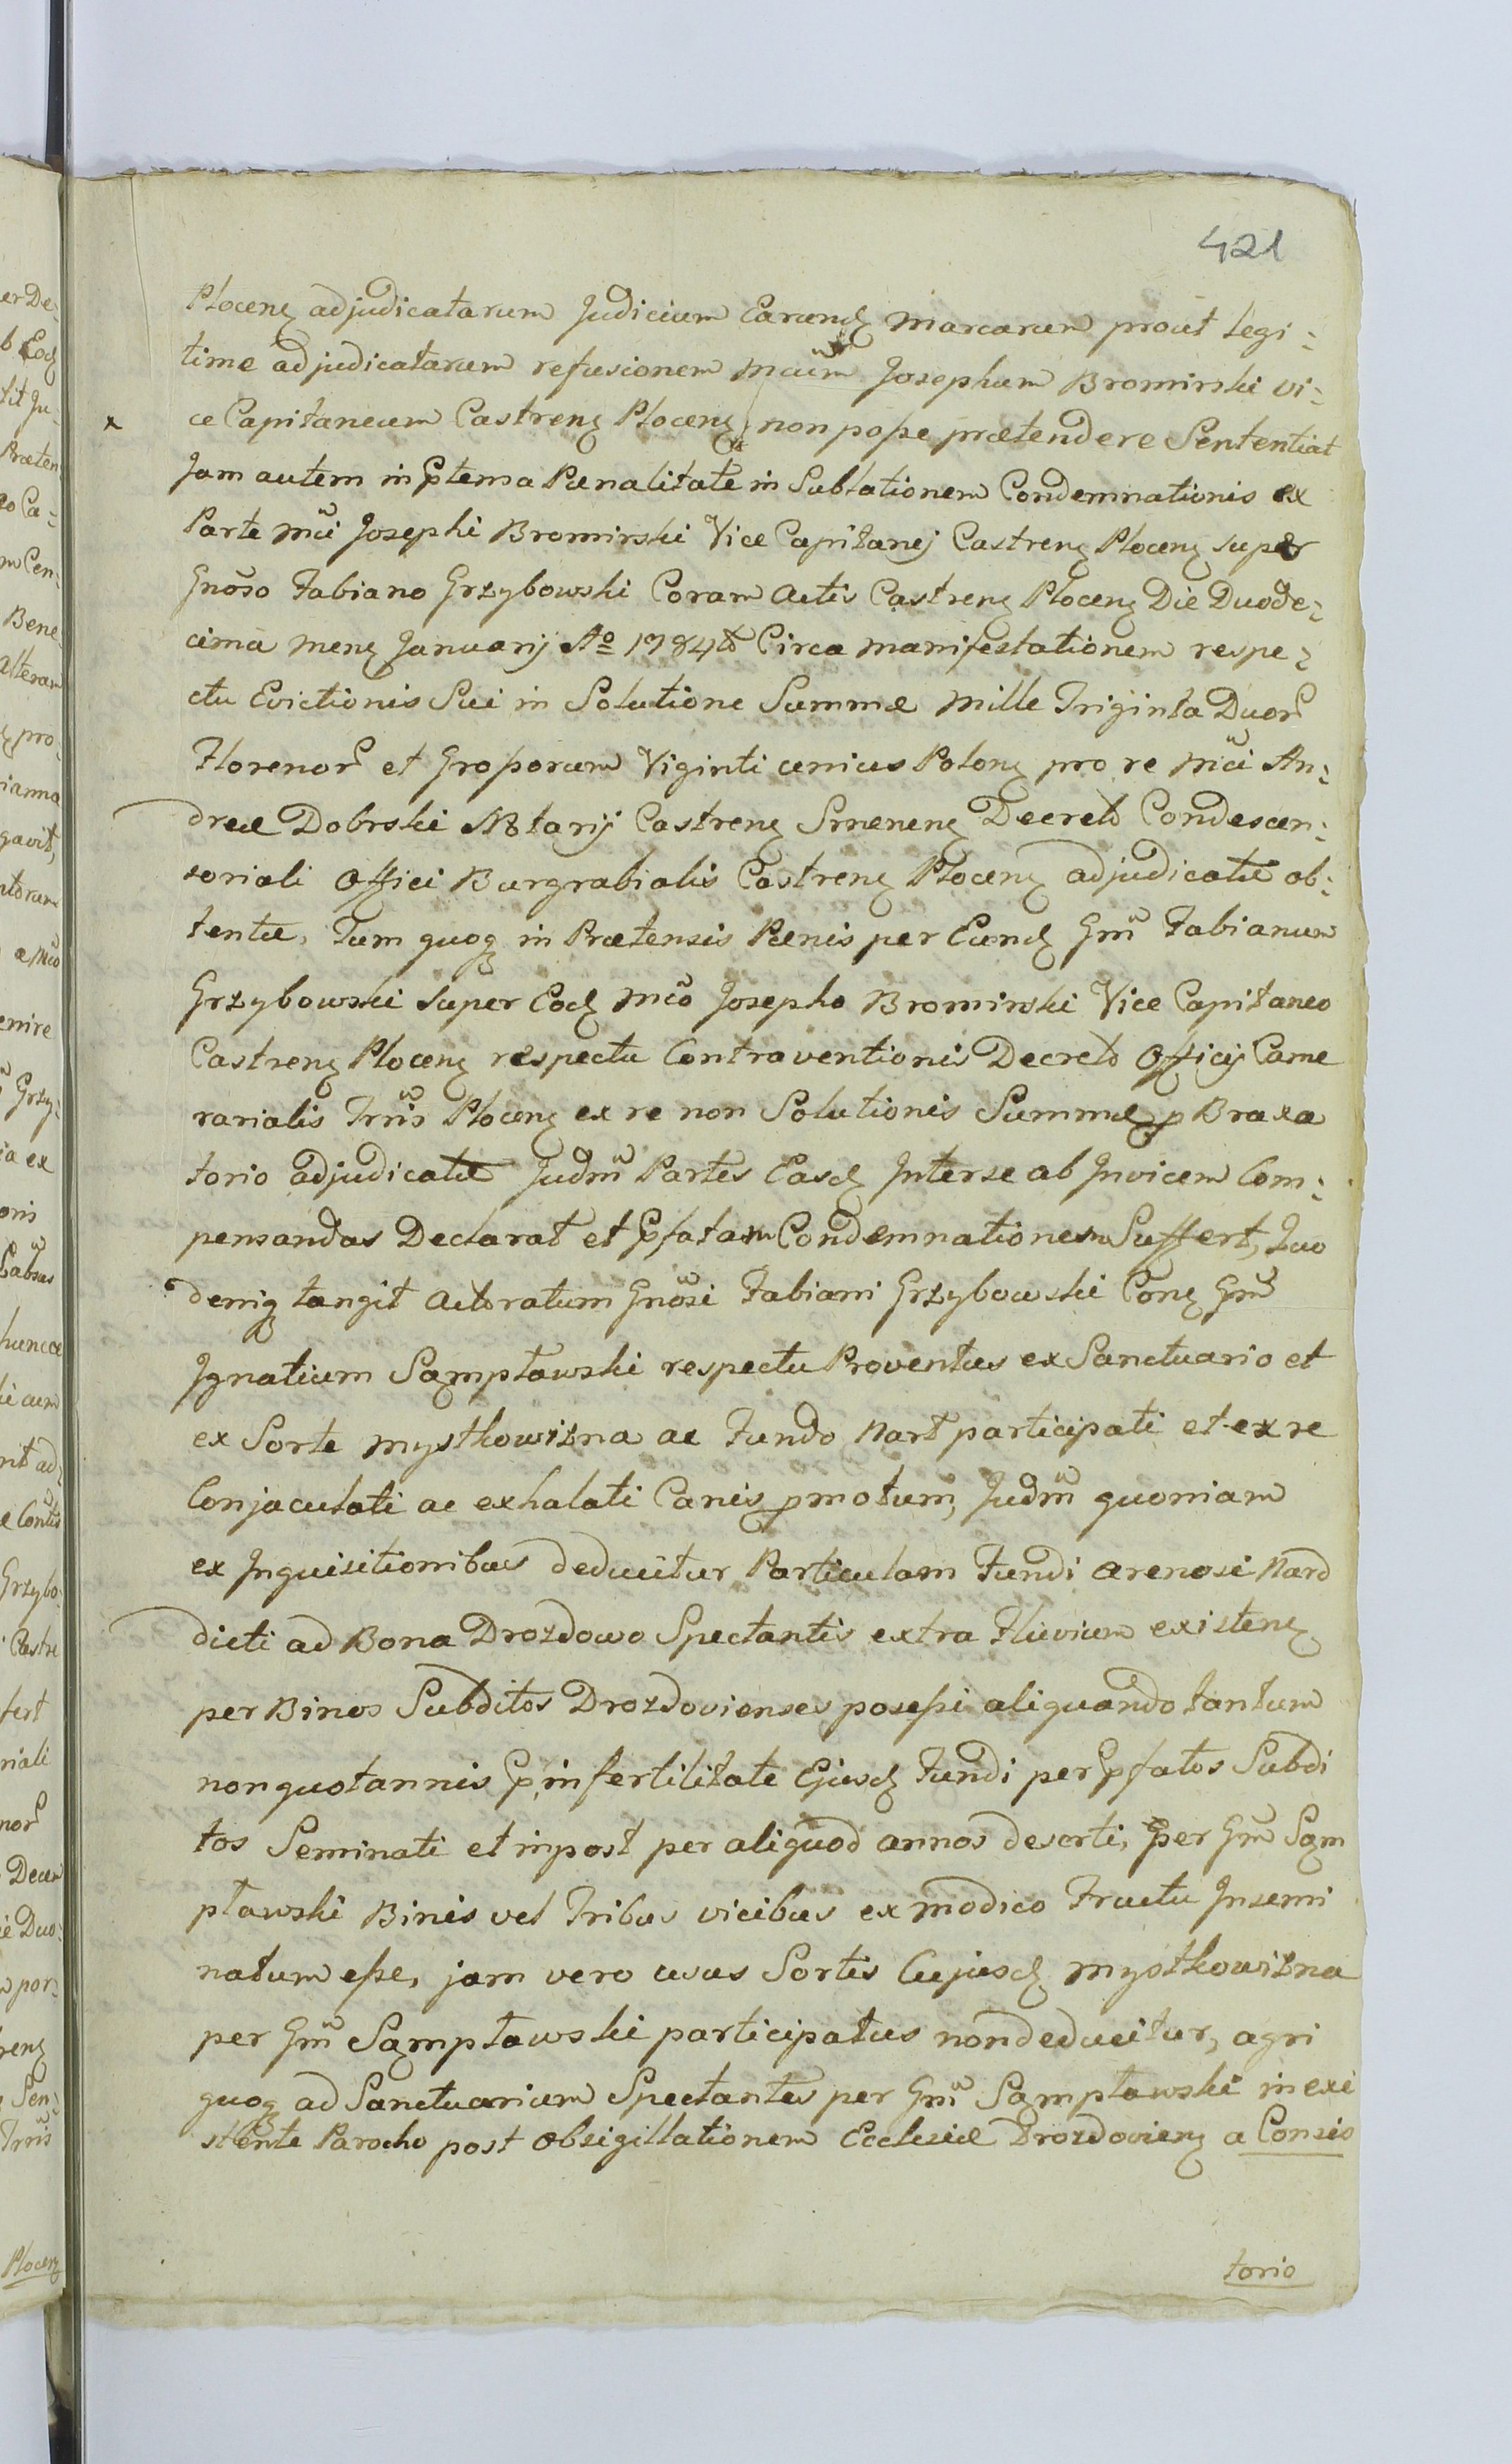 421
Plocenȝ adjudicatarum Judicium Earundȝ Marcarum prout legi:
time adjudicatarum refusionem Mcum Josephum Bromirski Vi:
x ce Capitaneum Castrenȝ Plocenȝ non posse prætendere Sententiat
Jam autem in Ptensa Pœnalitate in Sublationem Condemnationis ex
Parte Mci Josephi Bromirski Vice Capitanej Castrenȝ Plocenȝ super
Gnoso Fabiano Grzybowski Coram Actis Castrenȝ Plocenȝ Die Duode:
cima Menȝ Januarij Ao 1784to Circa manifestationem respe:
ctu Evictionis Sui in Solutione Summæ Mille Triginta Duor
Florenor et Grossorum Viginti unius Polonȝ pro re Mci An:
dreæ Dobrski Notarij Castrenȝ Srnenenȝ Decreto Condescen:
soriali Offici Burgrabialis Castrenȝ Plocenȝ adjudicatæ ob:
tentæ, Tum quoqȝ in Prætensis Pœnis per Eundȝ Gnm Fabianum
Grzybowski super Eodȝ Mco Josepho Bromirski Vice Capitaneo
Castrenȝ Plocenȝ respectu Contraventionis Decreto Officij Came
rarialis Trris Plocenȝ ex re non Solutionis Summæ p Braxa
torio adjudicatæ Judm Partes Easdȝ Interse ab Invicem Com:
pensandas Declarat et Pfatam Condemnationem Suffert, Quo
deniqȝ tangit Actoratum Gnosi Fabiani Grzybowski Conȝ Gnm
Ignatium Sąmpławski respectu Proventus ex Sanctuario et
ex Sorte Mystkowizna ac Fundo Nart participati et ex re
Conjaculati ac exhalati Canis pmotum, Judm quoniam
ex Inquisitionibus deducitur Particulam Fundi arenosi Nard
dicti ad Bona Drozdowo Spectantis extra Fluvium existenȝ
per Binos Subditos Drozdovienses possessi aliquando tantum
non quotannis P infertilitate Ejusdȝ Fundi per Pfatos Subdi
tos Seminati et inpost per aliquod annos deserti, per Gnm Sąm
pławski Binis vel Tribus vicibus ex modico Fructu Insemi
natum esse, jam vero usus Sortis Cujusdȝ Mystkowizna
per Gnm Sąmpławski participatus non deducitur, agri
quoqȝ ad Sanctuarium Spectantes per Gnm Sąmpławski in exi
stente Parocho post obsigillationem Ecclesiæ Drozdovienȝ a Consis
torio